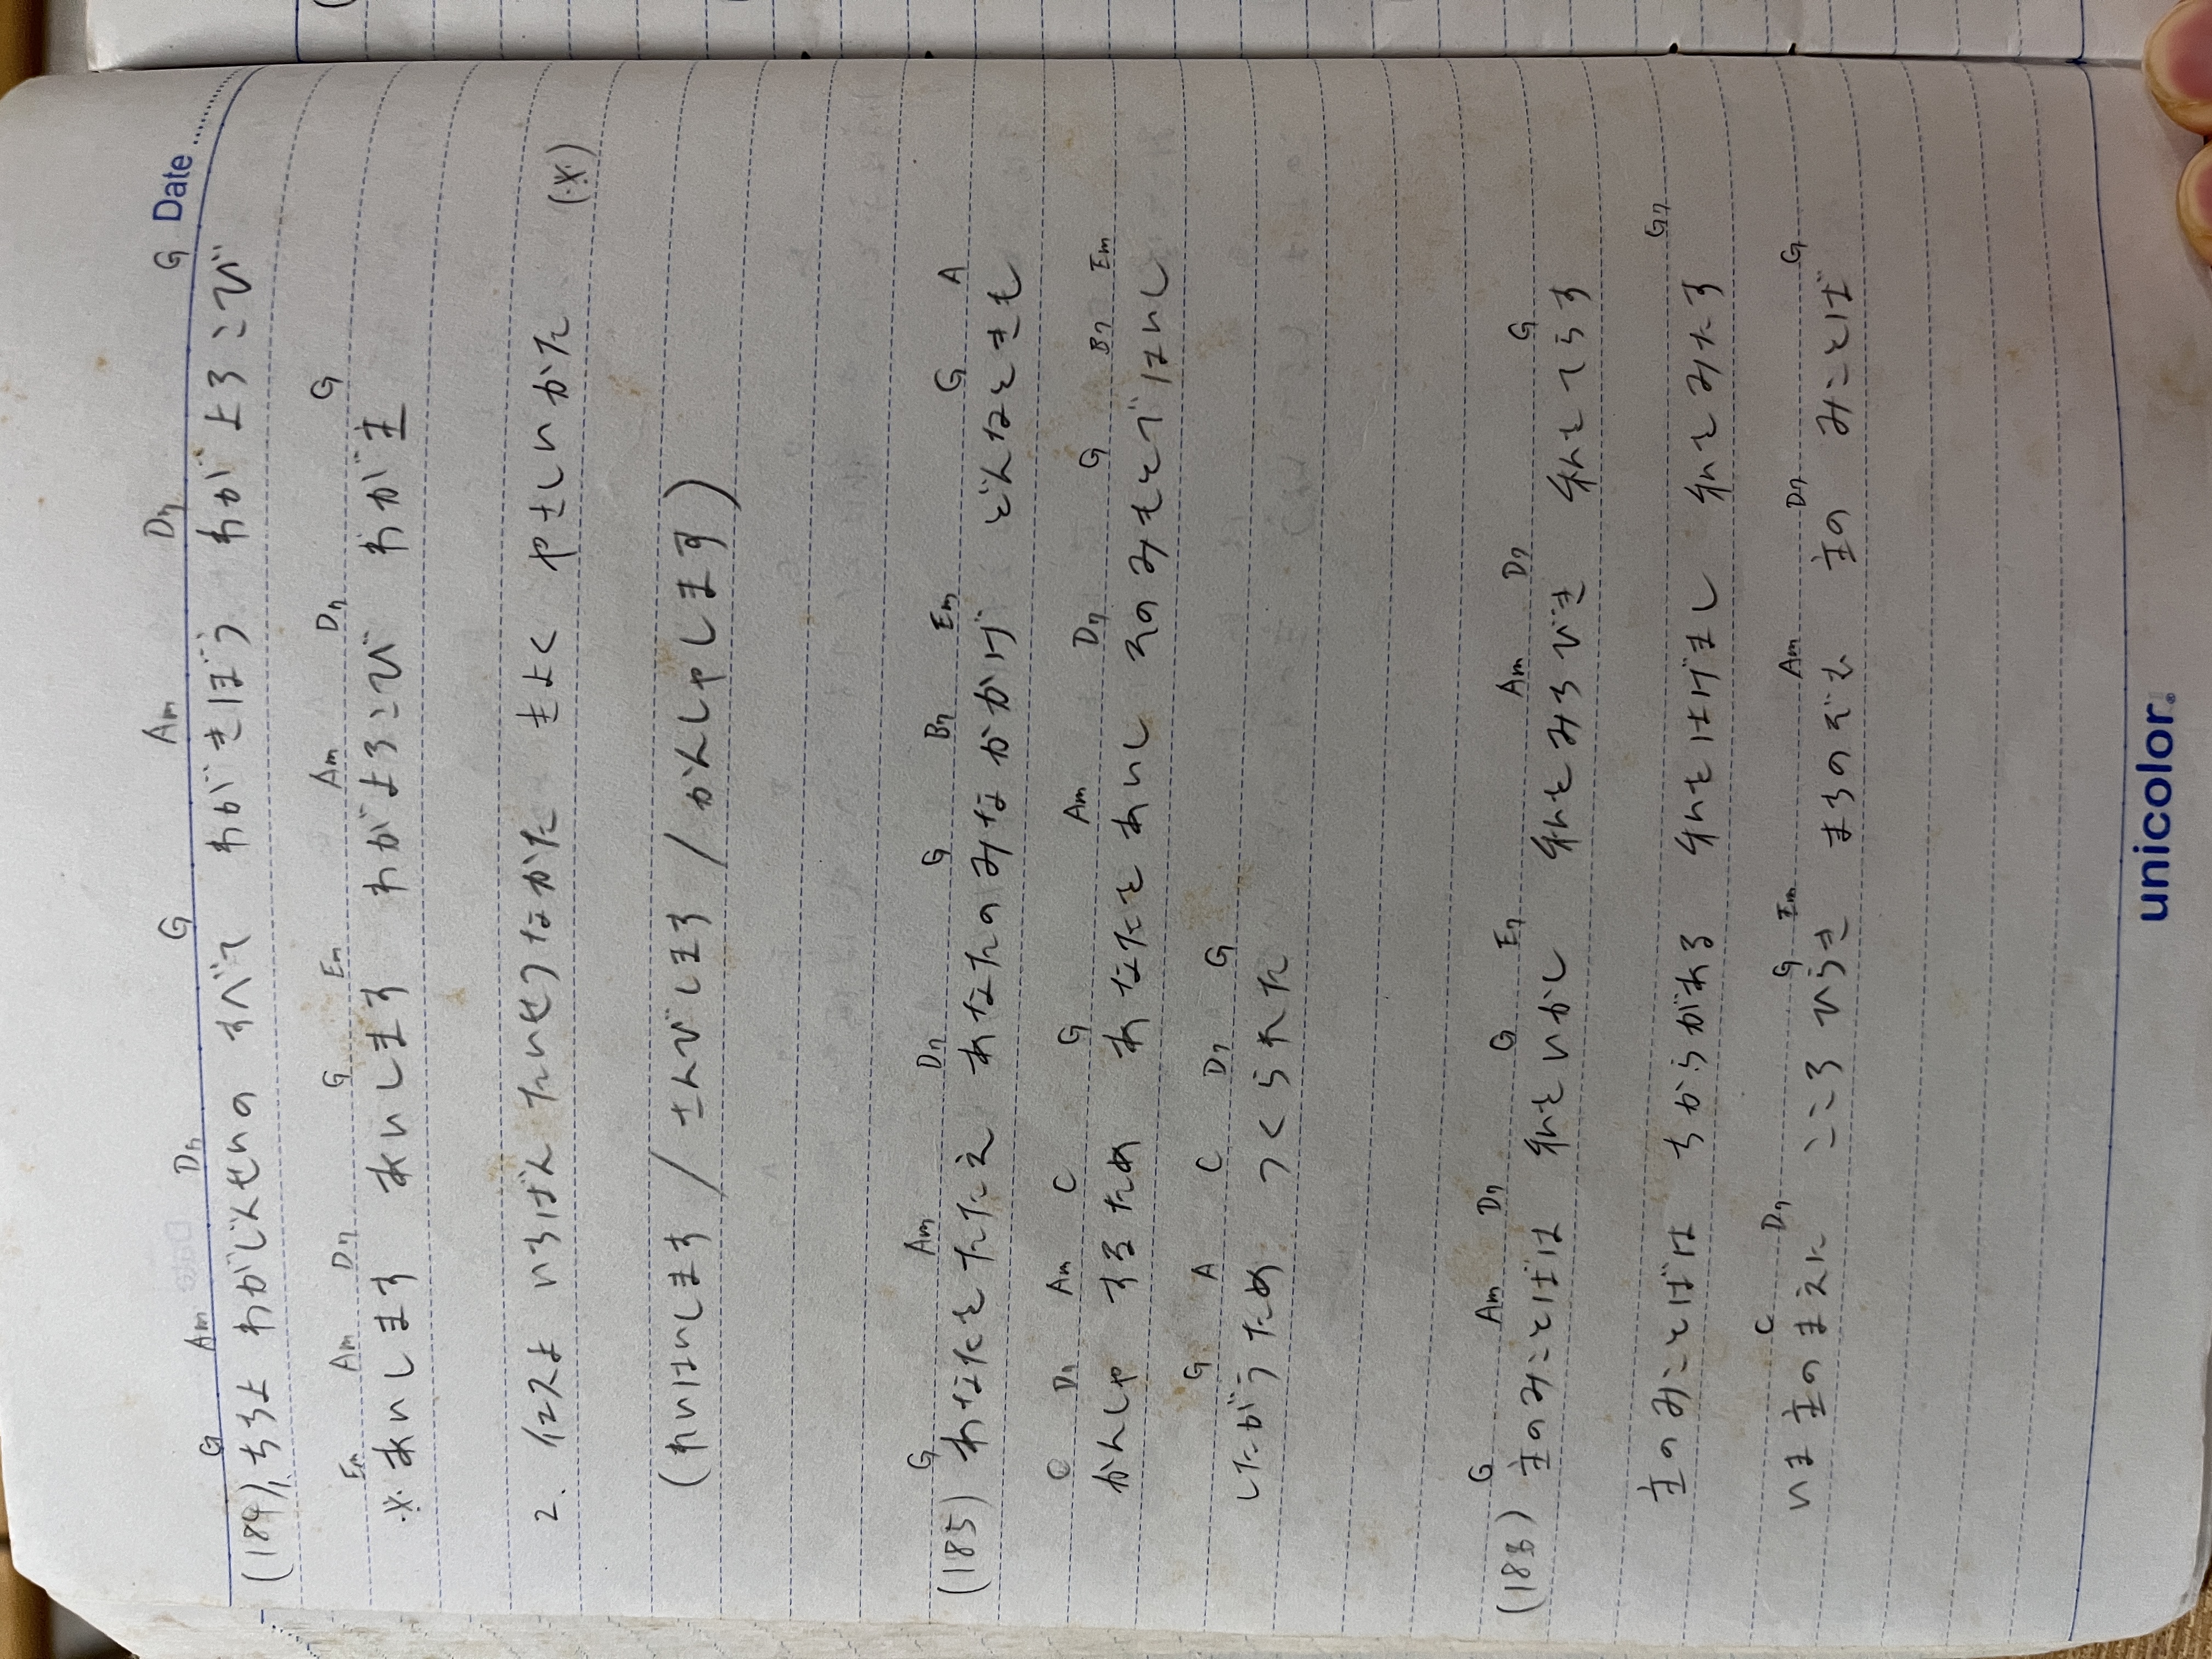 Date
G Am D7 G Am D7 G
(184) 1. ちちよ わがじんせいの すべて わがきぼう わがよろこび
Em Am D7 G Em Am D7 G
※あいします あいします わがよろこび わが主
2. イエスよ いちばん たいせつなかた きよく やさしいかた (※)
(れいはいします / さんびします / かんしゃします)
G Am D7 G B7 Em G A
(185) あなたをたたえ あなたのみなかかげ どんなときも
C D7 Am C G Am D7 G B7 Em
かんしゃ するため あなたをあいし そのみもとではいし
G A C D7 G
したがうため つくられた
G Am D7 G E7 Am D7 G
(183) 主のみことばは 私をいかし 私をみちびき 私をてらす
G7
主のみことばは ちからがある 私をはげまし 私をみたす
C D7 G Em Am D7 G
いま主のまえに こころひらき まちのぞむ 主の みことば
unicolor.